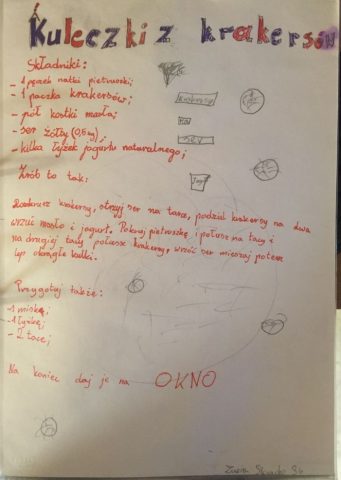 Kuleczki z krakersów
Składniki:
- 1 pęczek natki pietruszki;
- 1 paczka krakersów;
- pół kostki masła;
- ser żółty (0,5 kg);
- kilka łyżek jogurtu naturalnego;
Zrób to tak:
krakersy, ser na tarce, podziel krakersy na dwa
wrzuć masło i jogurt. Pokrój pietruszkę, i połusz na tacy i
na drugiej tacy połusz krakersy, wrzuć ser mieszaj potem
lep okrągłe kulki.
Przygotuj także:
- 1 miskę;
- 1 łyżkę;
- 2 tace;
Na koniec daj je na OKNO